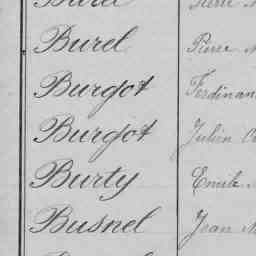 Burel Pierre
Burgot Ferdinan
Burgot Julien
Burty Emile
Busnel Jean M